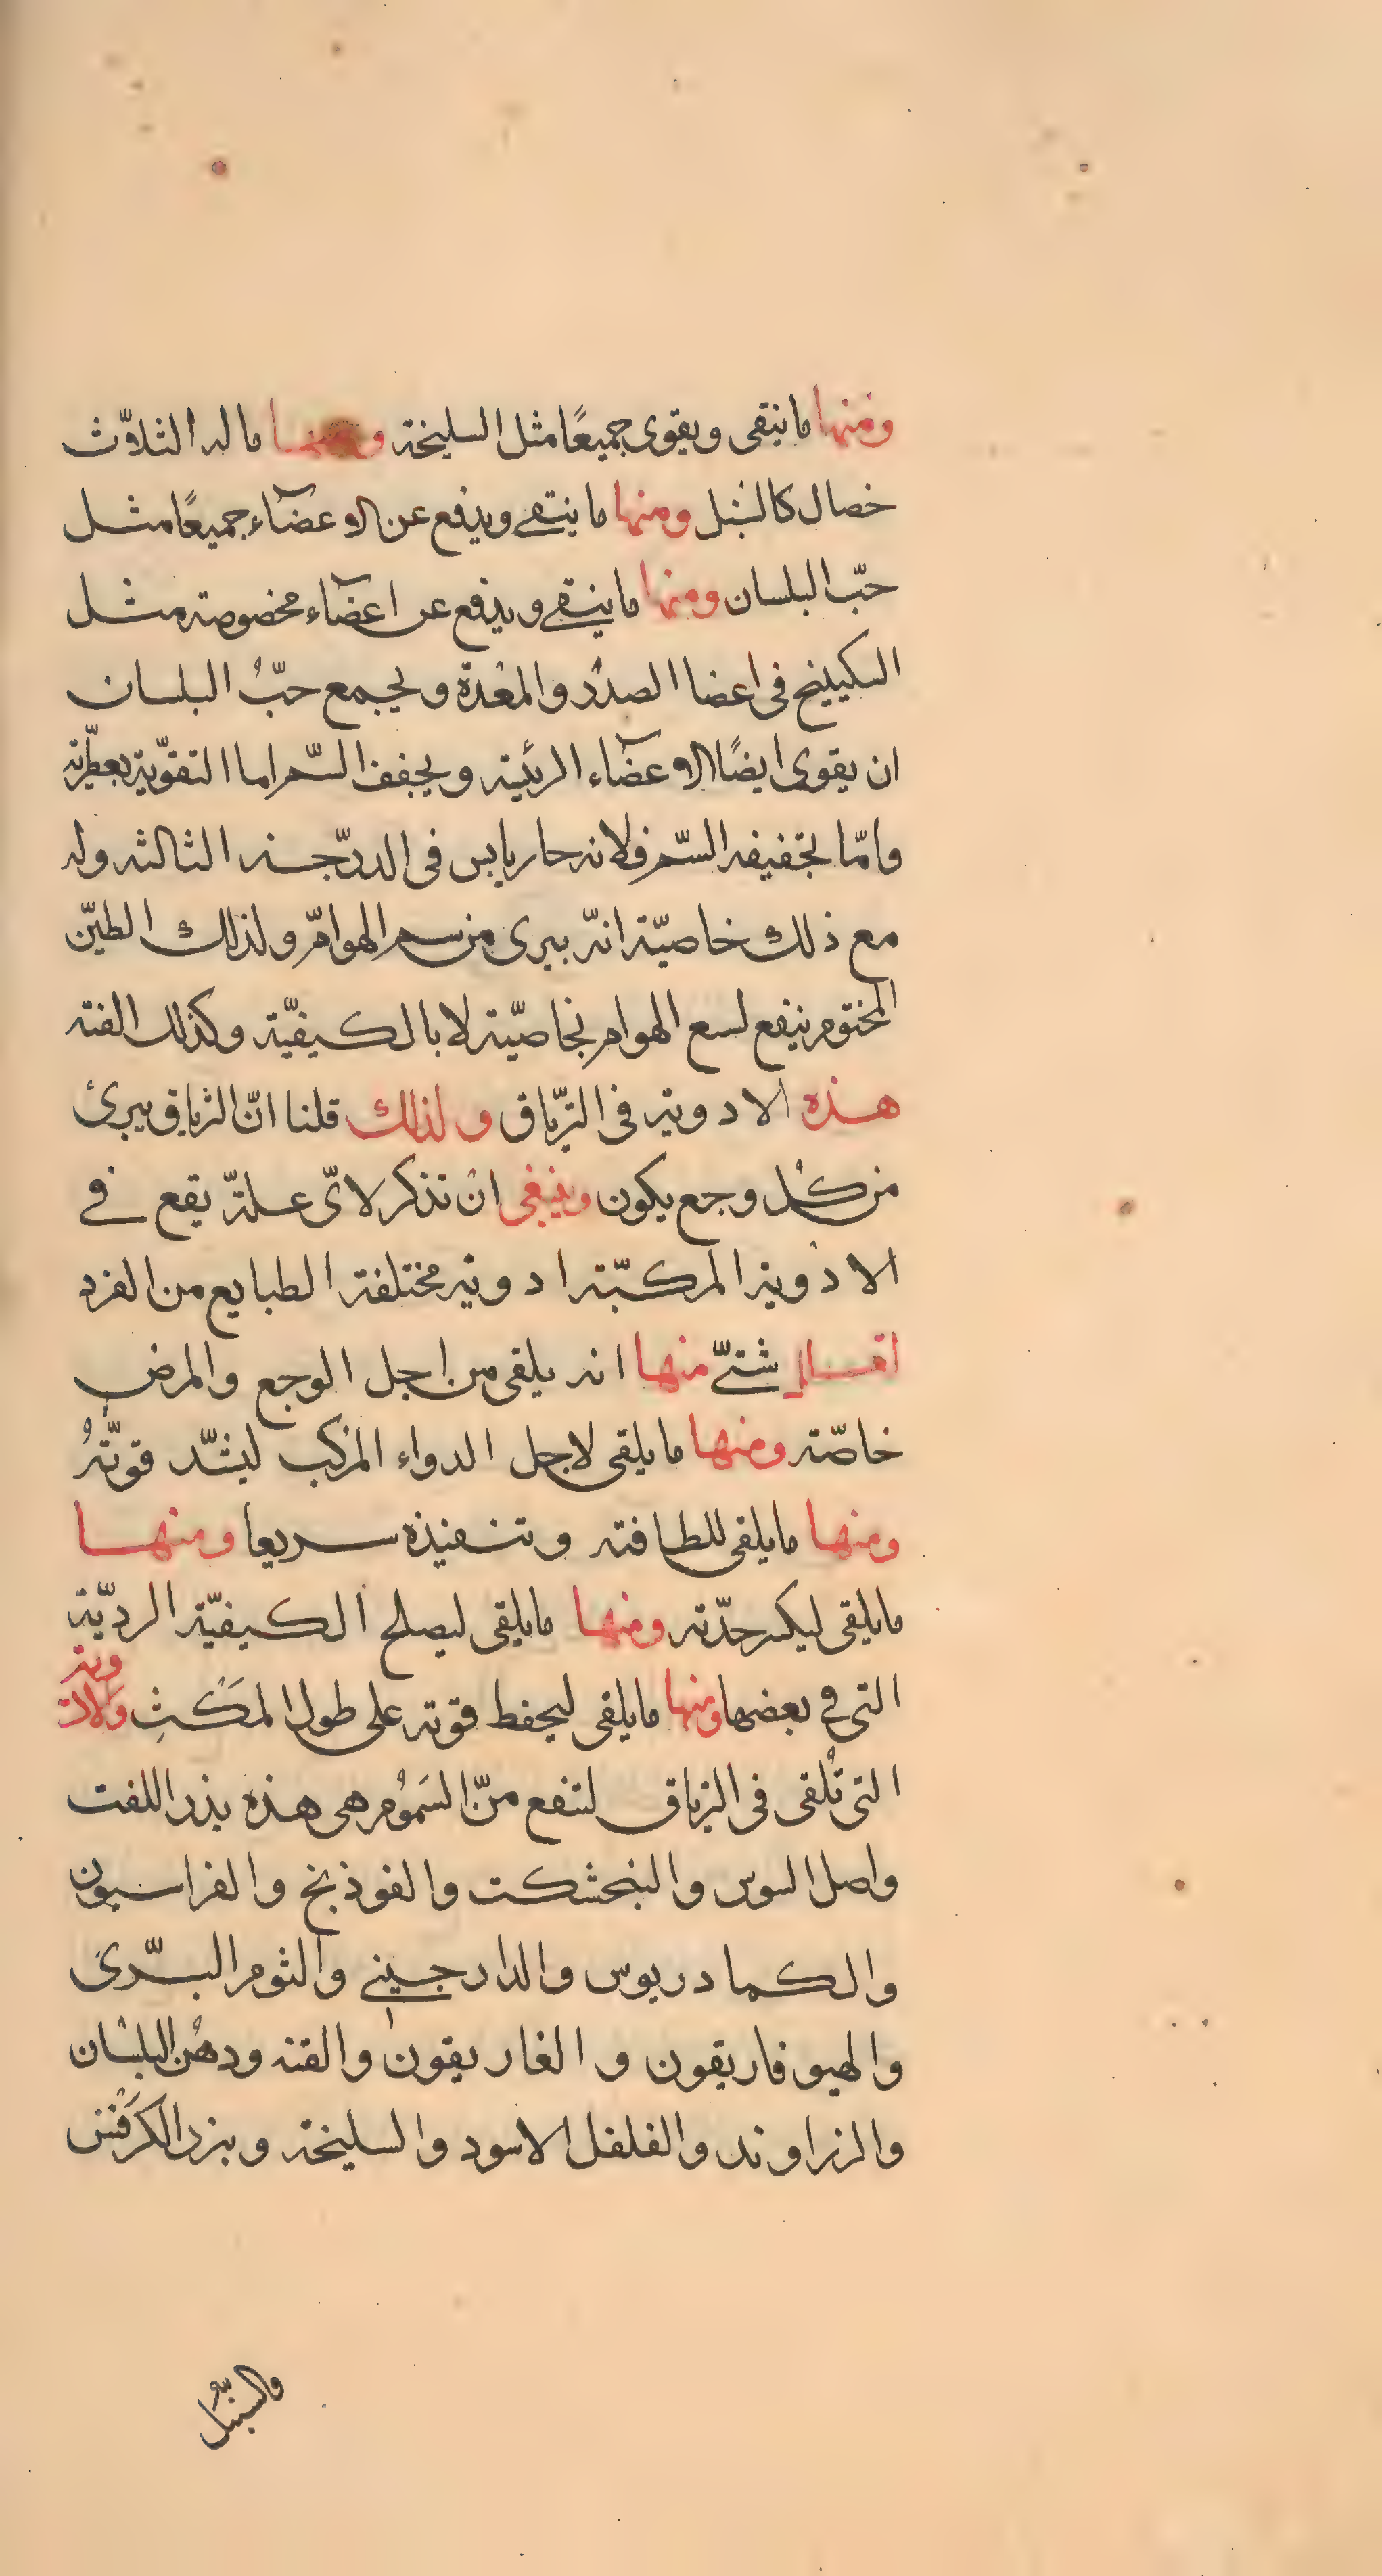 ومنها ما ينقى ويقوى جميعًا مثل السليخة ومنها ما له الثلاث
خصال كالسنبل ومنها ما ينقى ويدفع عن الاعضآء جميعًا مثل
حبّ البلسان ومنها ما ينقى ويدفع عن اعضآء مخصوصة مثل
السكبينج فى اعضا الصدر والمعدة ويجمع حبُّ البلسان
ان يقوى ايضًا الاعضآء الرئية ويجفف السّم اما التقوّية بعطّرية
وامّا تجفيفه السّم فلانه حار يابس فى الدرّجة الثالثه وله
مع ذلك خاصيّة انّه يبرى من سم الهوامّ ولذلك الطيّن
المختوم ينفع لسع الهوام بخاصيّة لا بالكيفيّة وكذلك الفته
هذه الادوية فى الترّياق ولذلك قلنا انّ الترياق يبرئ
من كل وجع يكون وينبغى ان نذكر لاىّ علّة يقع فى
الادوية المركبّة ادوية مختلفة الطبايع من الفرد
اقسام شتىّ منها انه يلقى من اجل الوجع والمرض
خاصّة ومنها ما يلقى لاجل الدواء المركب ليشّد قوتّهُ
ومنها ما يلقى للطافته وتنفيذه سريعا ومنها
ما يلقى ليكسر حدّته ومنها ما يلقى ليصلح الكيفيّة الرديّة
التى فى بعضها ومنها ما يلقى ليحفط قوته على طول المكثِ والادوية
التى تُلقى فى الترياق لتنفع منّ السَمُوم هى هذه بذر اللفت
واصل السوس والبنجشكت والفوذنج والفراسيون
والكمادريوس والدارجينى والثوم البّرى
والهيوفاريقون والغاريقون والقنه ودهن البلسان
والزراوند والفلفل الاسود والسليخة وبزر الكرَفْس
والسنبّل